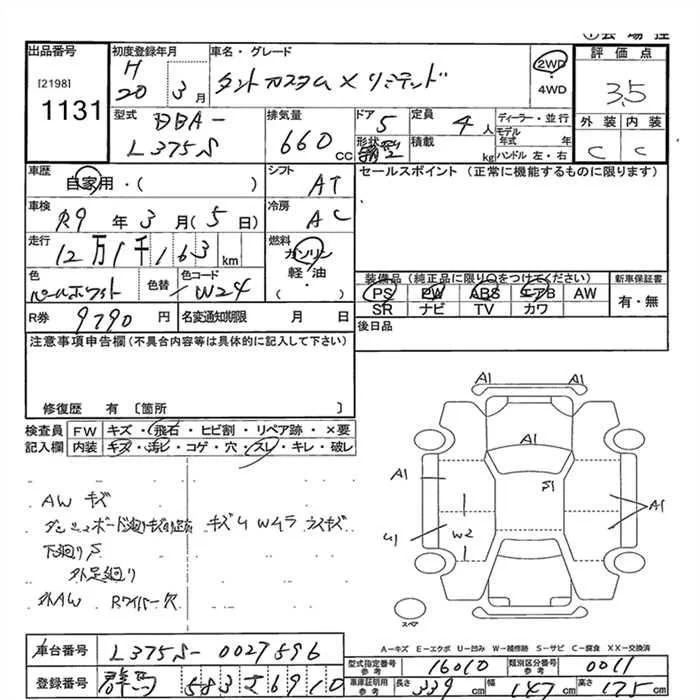 ①会場控
出品番号 初度登録年月 車名・グレード 評価点
[2198] H20 3月 タントカスタム X リミテッド 2WD・4WD 3.5
1131
型式 DBA-L375S 排気量 660 cc ドア 5 定員 4人 ディーラー・並行 外装 内装
形状 積載 kg モデル年式 年 ハンドル 左・右 C C
車歴 自家用・( ) シフト AT セールスポイント (正常に機能するものに限ります)
車検 R9年3月(5日) 冷房 AC
走行 12万1千163km 燃料 ガソリン 軽・油 ・( )
装備品(純正品に限り○をつけてください) 新車保証書
色 パールホワイト 色替 色コード W24 PS PW ABS エアB AW 有・無
SR ナビ TV カワ
R券 9790円 名変通知期限 月 日 後日品
注意事項申告欄(不具合内容等は具体的に記入して下さい)
修復歴 有 〔箇所 〕
検査員記入欄 FW キズ・飛石・ヒビ割・リペア跡・×要
内装 キズ・汚レ・コゲ・穴・スレ・キレ・破レ
A1 A1
A1
A1 S1 A1
U1 W2
AW キズ
キズU Wムラ ラスキズ
下廻りS
外足廻り
外AW Rワイパー欠
スペア
A-キズ E-エクボ U-凹み W-補修跡 S-サビ C-腐食 XX-交換済
車台番号 L375S-0027896
型式指定番号 参考 16010 類別区分番号 参考 0011
登録番号 群馬 583 6910
車庫証明用 参考 長さ 339cm 幅 147cm 高さ 175cm